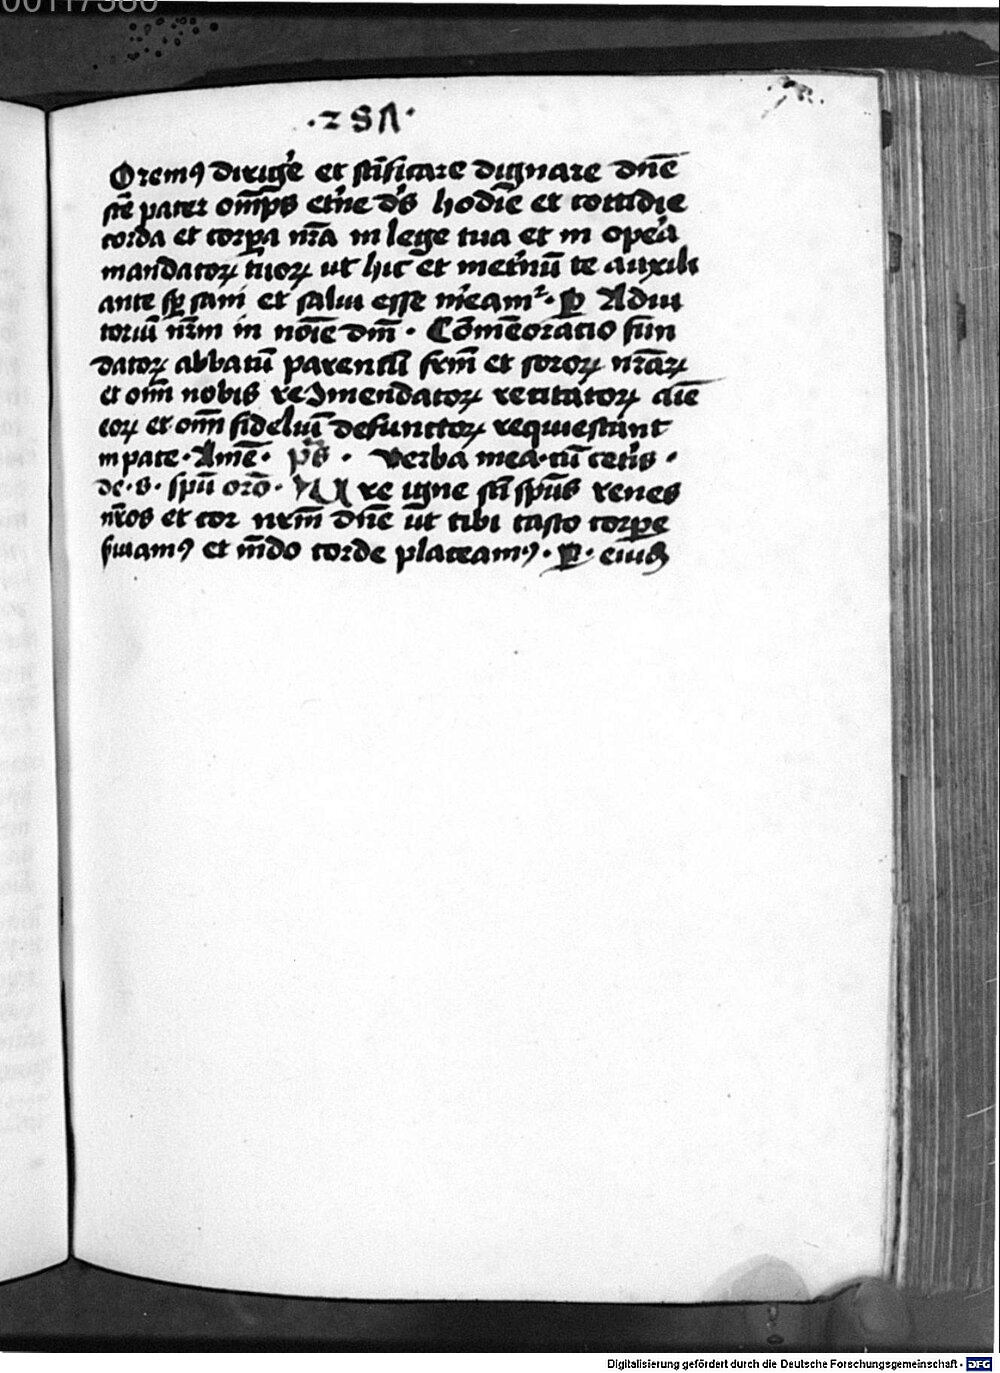 00117380
·287·
Oremꝰ dirig̕e et sc̄ificare dignare dn̄e
sc̄e pater om̄ps et̕ne d̕s hodie et cottidie
corda et corpa nr̄a in lege tua et in ope̕a
mandatoꝝ tuoꝝ ut hic et inet̕nū te auxili
ante sꝑ sani et salui esse m̕eamʳ · ꝑ Adiu
toriū nr̄m in noīe dn̄i · Cōmēoracio fun
datoꝝ abbatū parentū frm̄ et soroꝝ nr̄aꝝ
et om̄ nobis reↄmendatoꝝ recitatoꝝ aīe
eoꝝ et om̄ fidelium defunctoꝝ requiescant
in pace · Amē · p̄s · Verba mea · cū cet̕is ·
de · s · spū orō · Ure igne sc̄i sp̄us renes
nr̄os et cor nr̄m dn̄e ut tibi casto corpe
s̕uiamꝰ et mūdo corde placeamꝰ · ꝑ · eiusdem
Digitalisierung gefördert durch die Deutsche Forschungsgemeinschaft - DFG